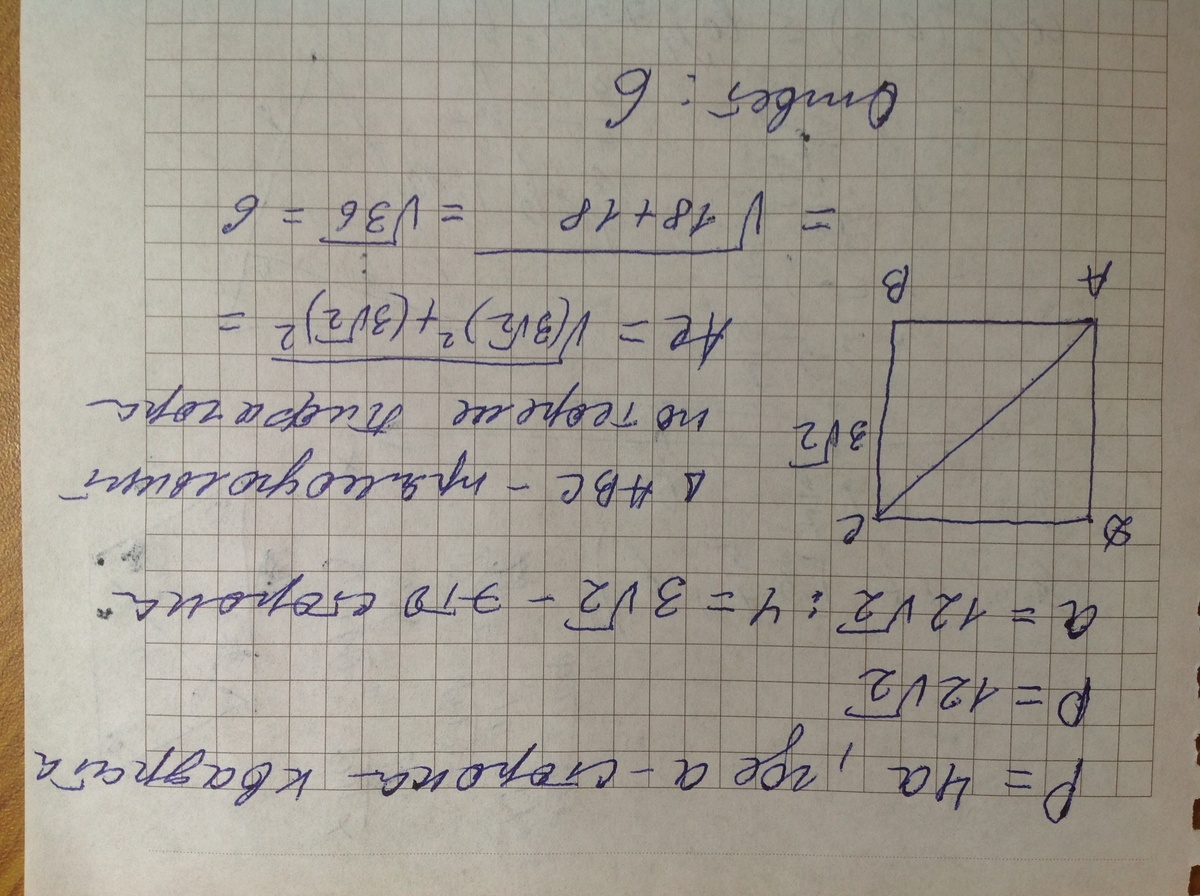 P = 4a, где a - сторона квадрата
P = 12√2
a = 12√2 : 4 = 3√2 - это сторона
D
C
3√2
A
B
Δ ABC - прямоугольный
по теореме Пифагора
AC = √(3√2)² + (3√2)² =
= √18+18 = √36 = 6
Ответ: 6